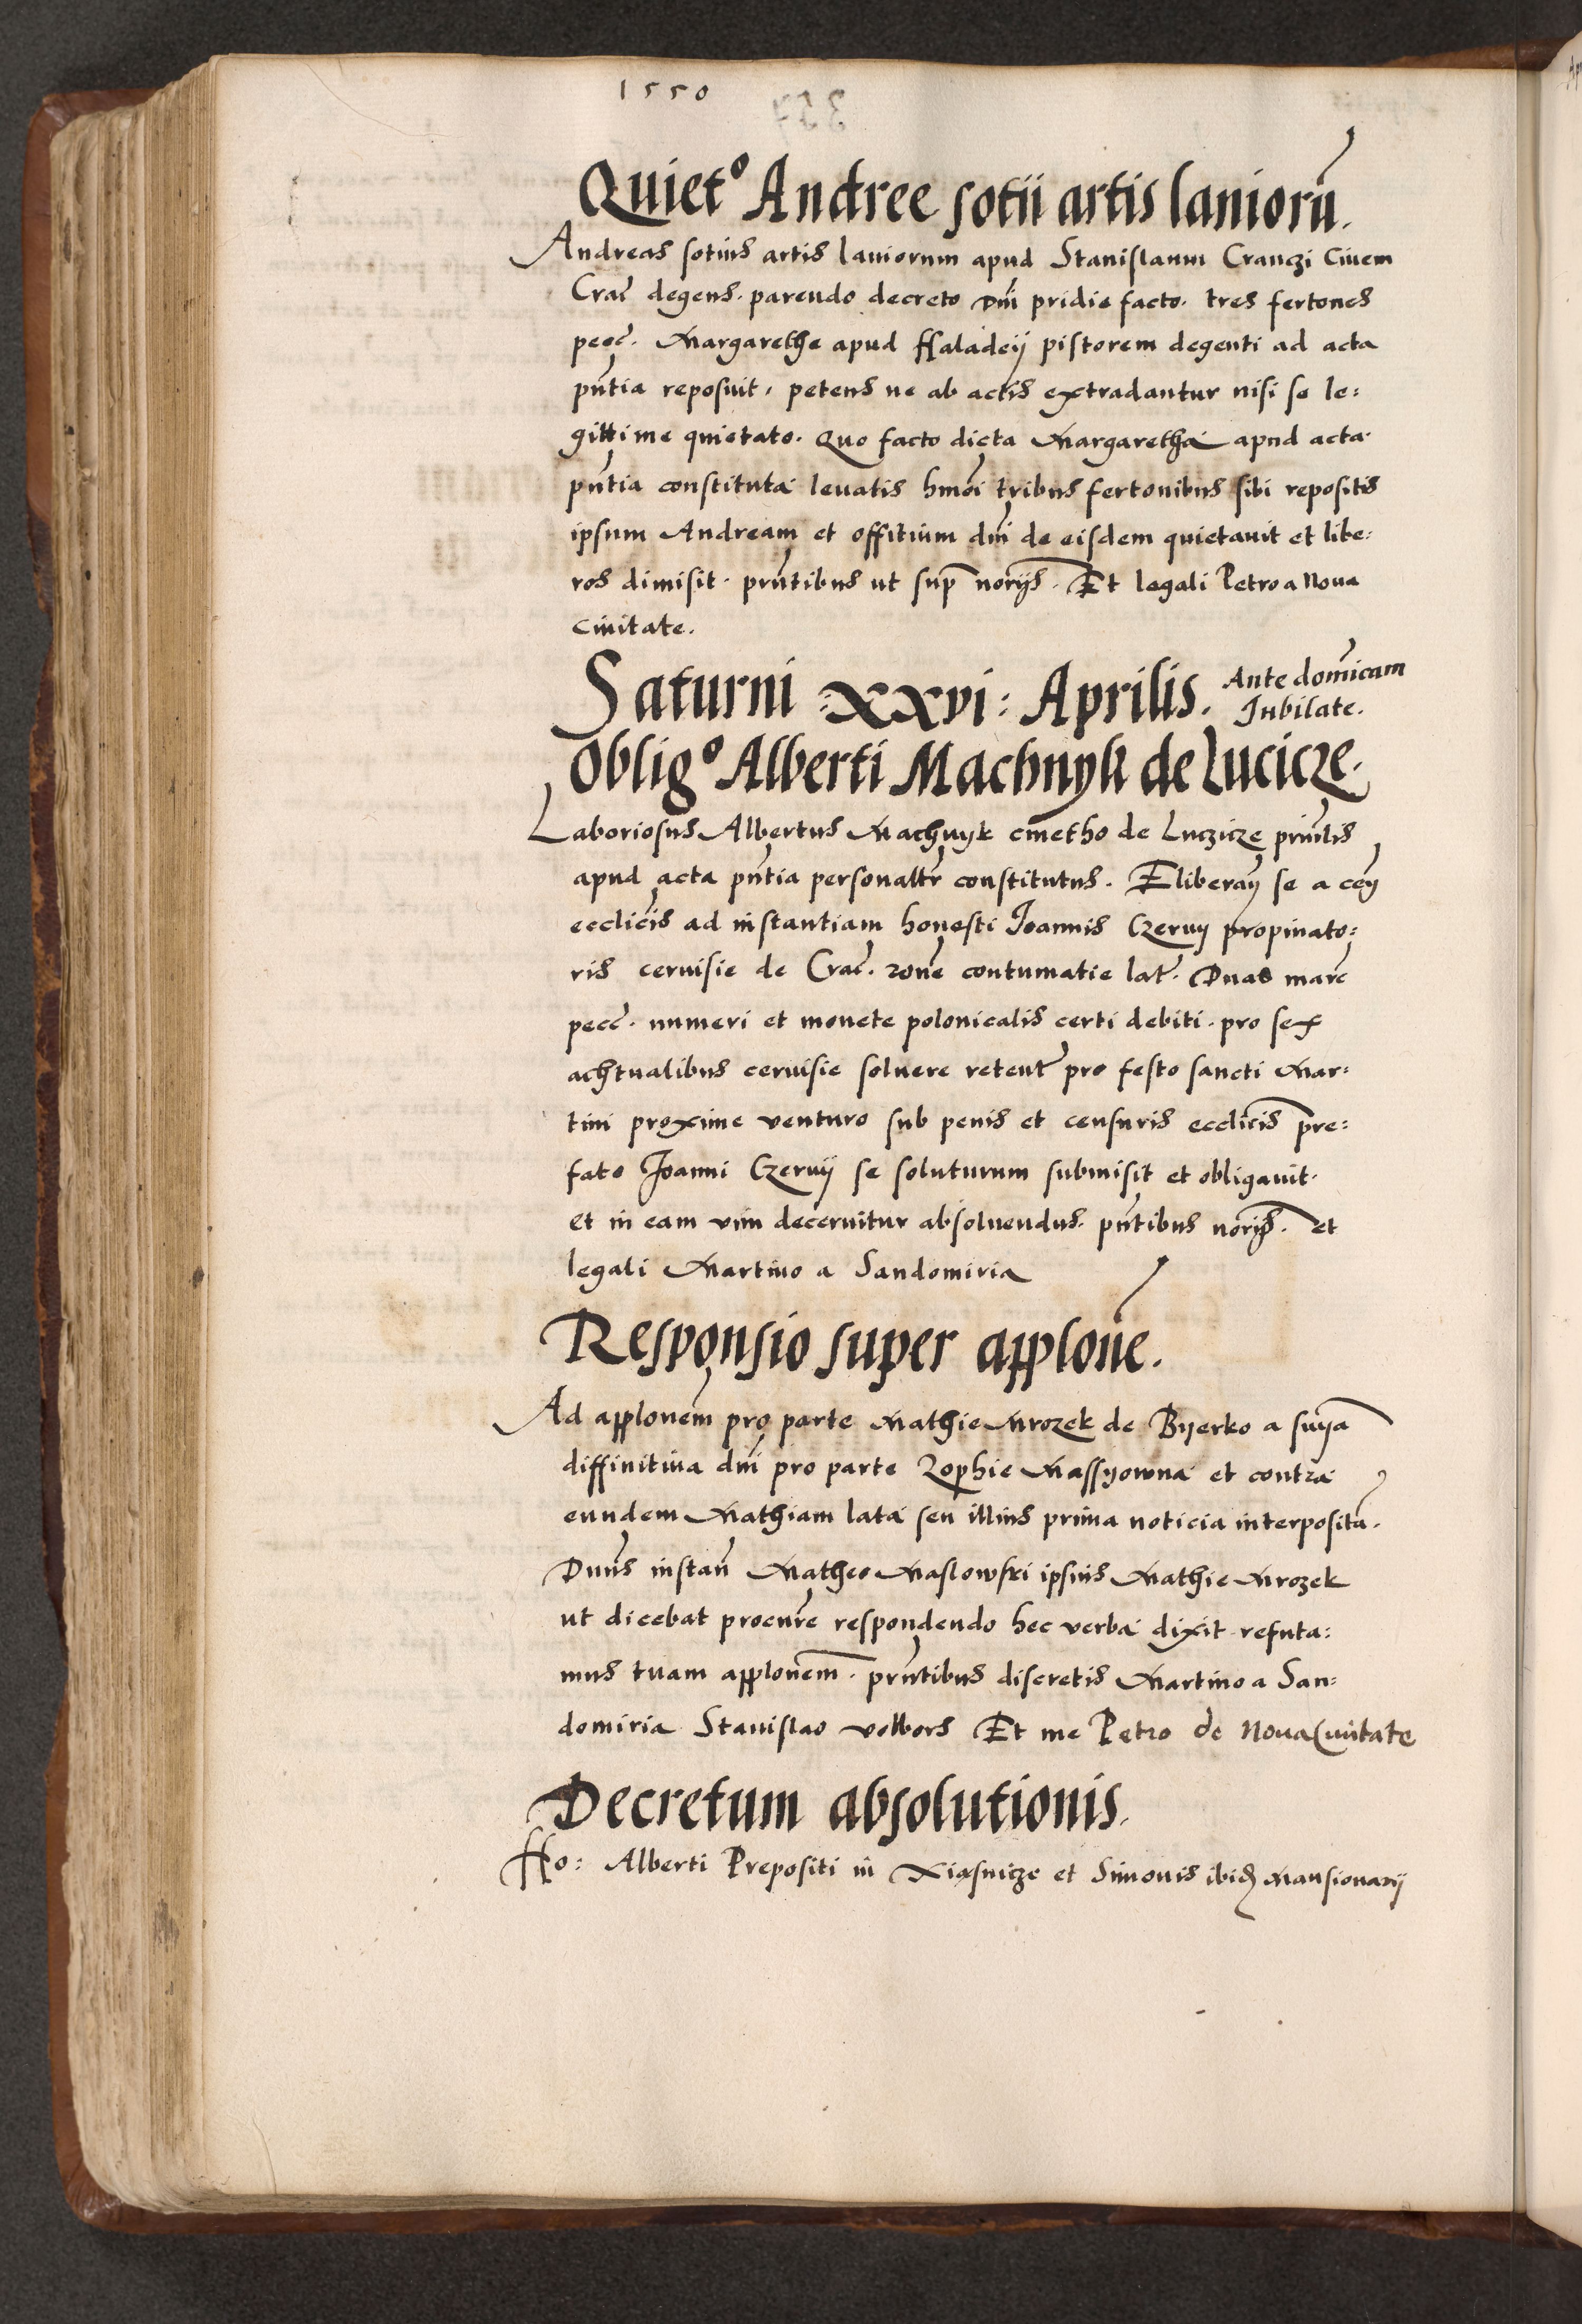 1550
Quiet⁰ Andree sotii artis laniorū.
Andreas sotius artis laniorum apud Stanislaum Cranczi Ciuem
Crač degens. parendo decreto dñi pridie facto. tres fertones
pecč. Margarethe apud Haladeÿ pistorem degenti ad acta
pñtia reposuit, petens ne ab actis extradantur nisi se le:
gittime quietato. Quo facto dicta Margaretha apud acta
pñtia constituta leuatis hmõi tribus fertonibus sibi repositis
ipsum Andream et offitium dñi de eisdem quietauit et libe:
ros dimisit. pñtibus ut sup norÿs. Et legali Petro a Noua
Ciuitate.
Saturni XXvi: Aprilis. Ante domĩcam
Iubilate.
Oblig⁰ Alberti Machnyk de Lucicze.
Laboriosus Albertus Machnyk cmetho de Luczicze priñlis
apud acta pñtia personaltr̃ constitutus. Eliberañ se a ceñ
ecclicis ad instantiam honesti Joannis Czerny propinato:
ris ceruisie de Crač. rõne contumatie lat̃. Duas marč
pecč. numeri et monete polonicalis certi debiti. pro sex
achtualibus ceruisie soluere retent̃ pro festo sancti Mar:
tini proxime venturo sub penis et censuris ecclicis pre:
fato Joanni Czernÿ se soluturum submisit et obligauit.
et in eam vim decernitur absoluendus. pñtibus norÿs. et
legali Martino a Sandomiria
Responsio super applone.
Ad applonem pro parte Mathie Mrozek de Bÿerko a sñia
diffinitiua dñi pro parte Zophie Massÿowna et contra
eundem Mathiam lata seu illius prima noticia interposita.
Dñus instañ Matheo Maslowski ipsius Mathie Mrozek
ut dicebat procure respondendo hec verba dixit refuta:
mus tuam applonem. pñtibus discretis Martino a San:
domiria Stanislao volbors Et me Petro de Noua Ciuitate
Decretum absolutionis.
Ho: Alberti Prepositi in Xiasnicze et Simonis ibid Mansionarÿ